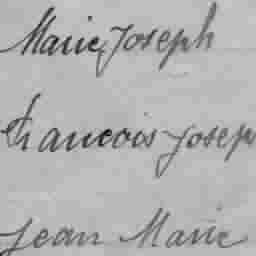 Marie Joseph
francois Josep
Jean Marie